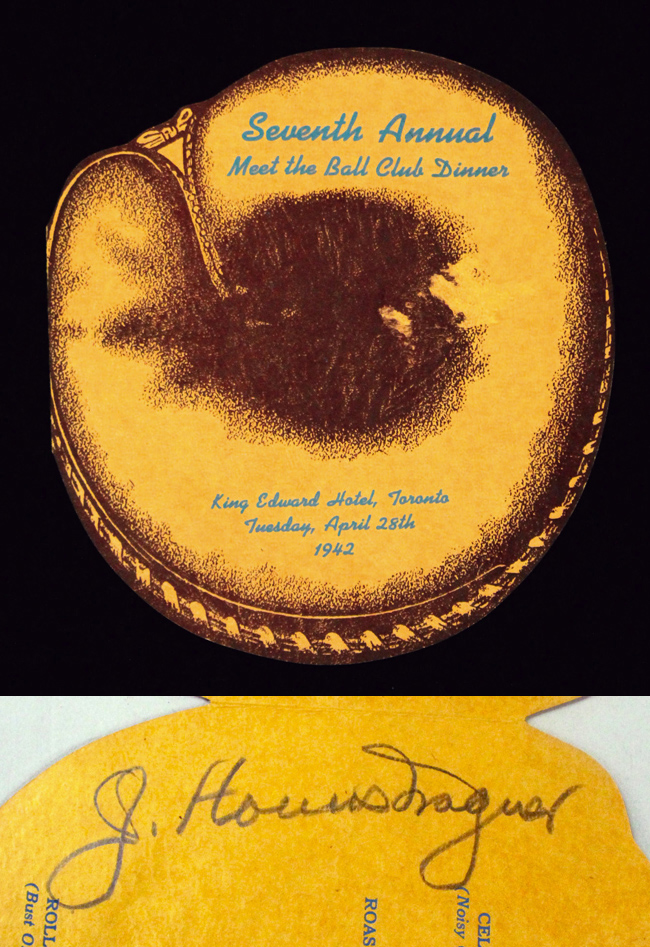 Seventh Annual
Meet the Ball Club Dinner
King Edward Hotel, Toronto
Tuesday, April 28th
1942
J. Honus Wagner
ROLL
(Bust O
ROAS
CEL
(Noisy